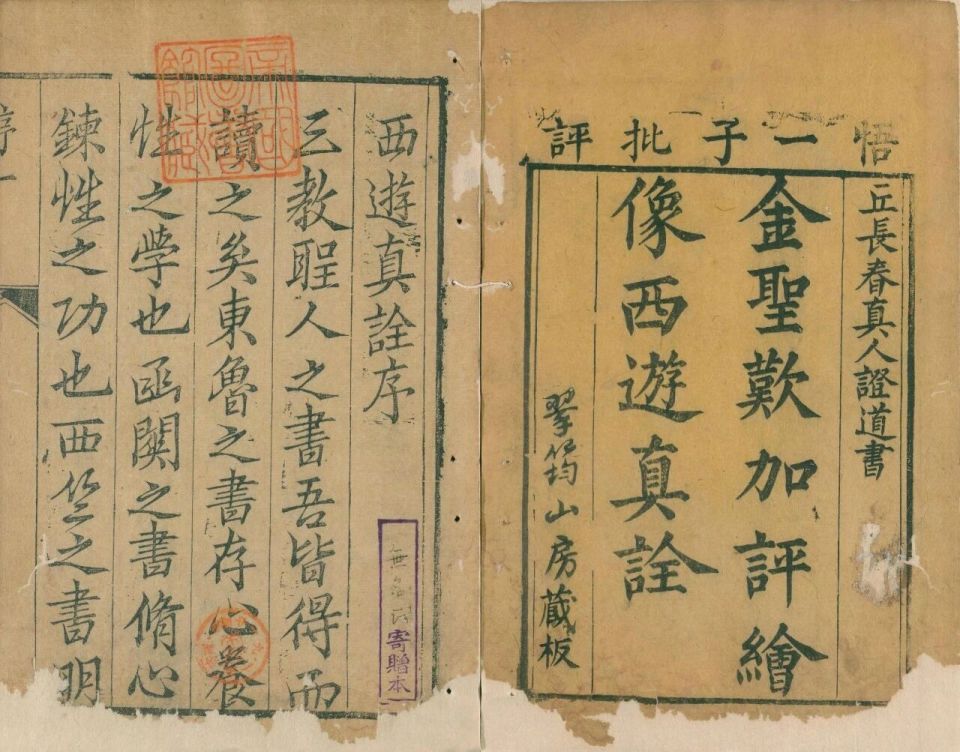 悟一子批評
丘長春真人證道書
金聖歎加評繪
像西遊真詮
翠筠山房藏板
西遊真詮序
三教聖人之書吾皆得而
讀之矣東魯之書存心養
性之學也函關之書脩心
鍊性之功也西竺之書明
寄贈本